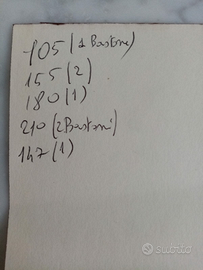 105 (1 Bastone)
155 (2)
180 (1)
210 (2 Bastoni)
147 (1)
subito